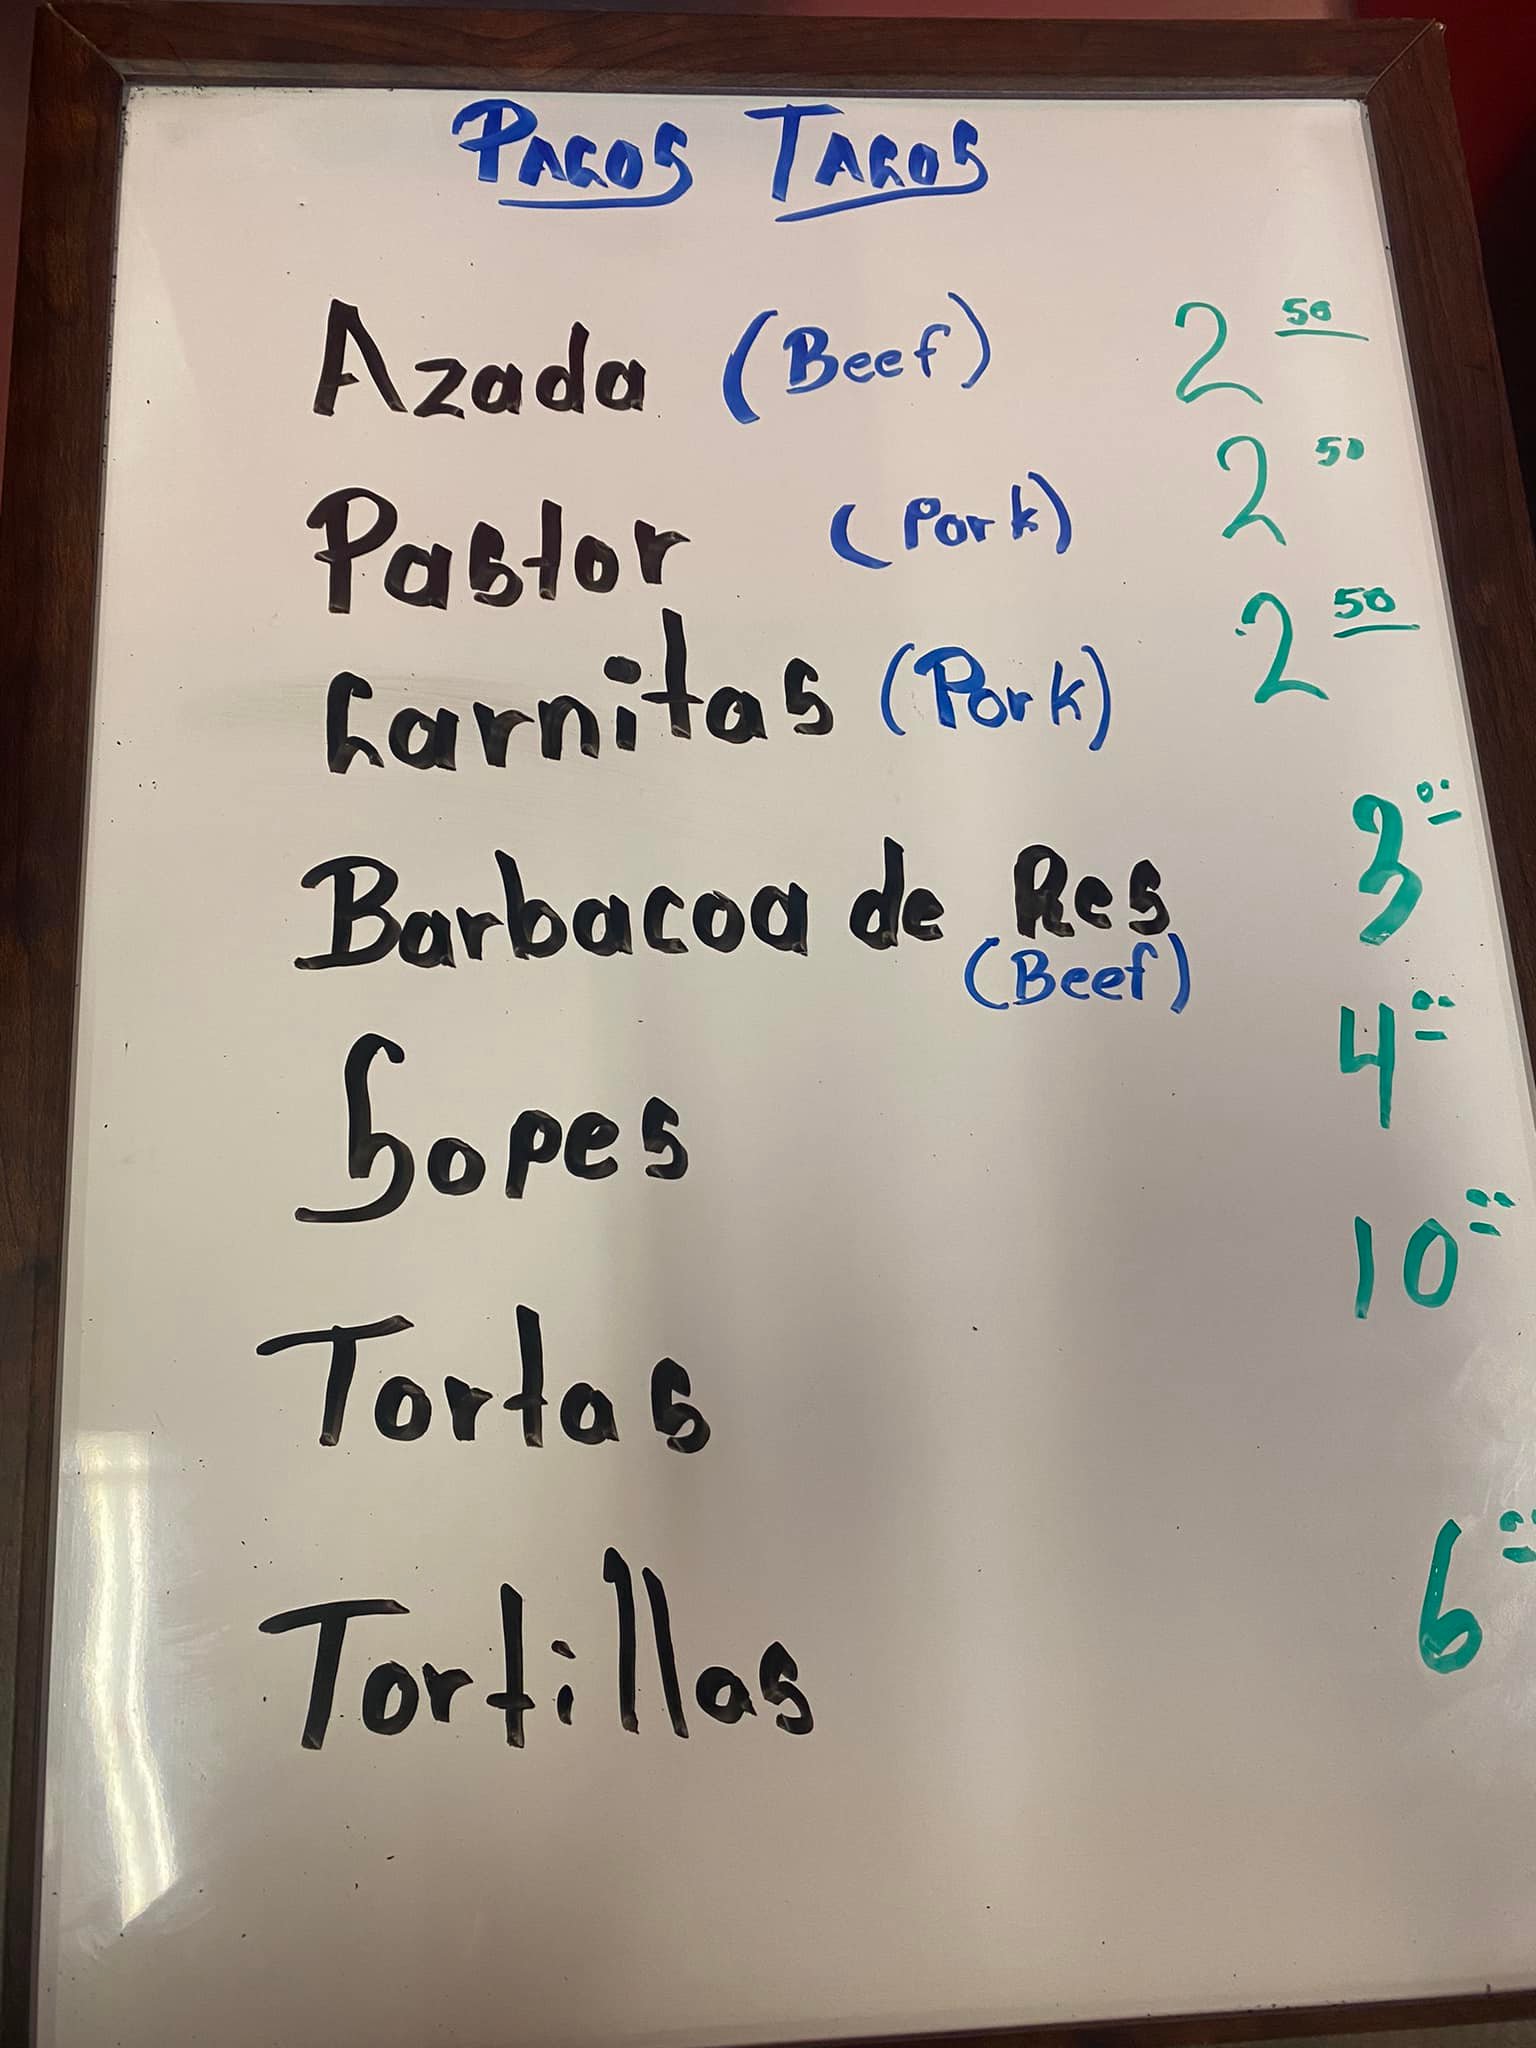 PACOS TACOS
Azada (Beef) 2 50
Pastor (Pork) 2 50
Carnitas (Pork) 2 50
Barbacoa de Res 3 00
(Beef)
Sopes 4 00
Tortas 10 00
Tortillas 6 00